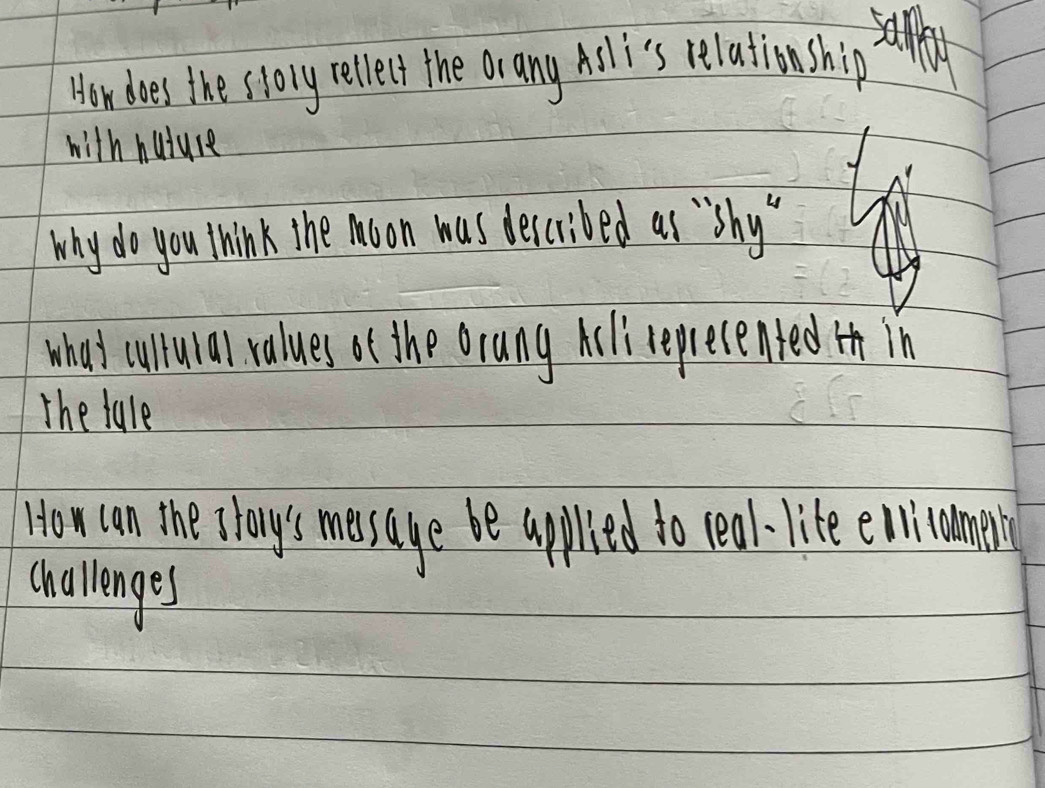 How does the story reflect the Orang Asli's relationship
with nature
why do you think the moon was described as "shy"
what cultural values of the Orang Asli represented in
the tale
How can the story's message be applied to real-life environmental
challenges